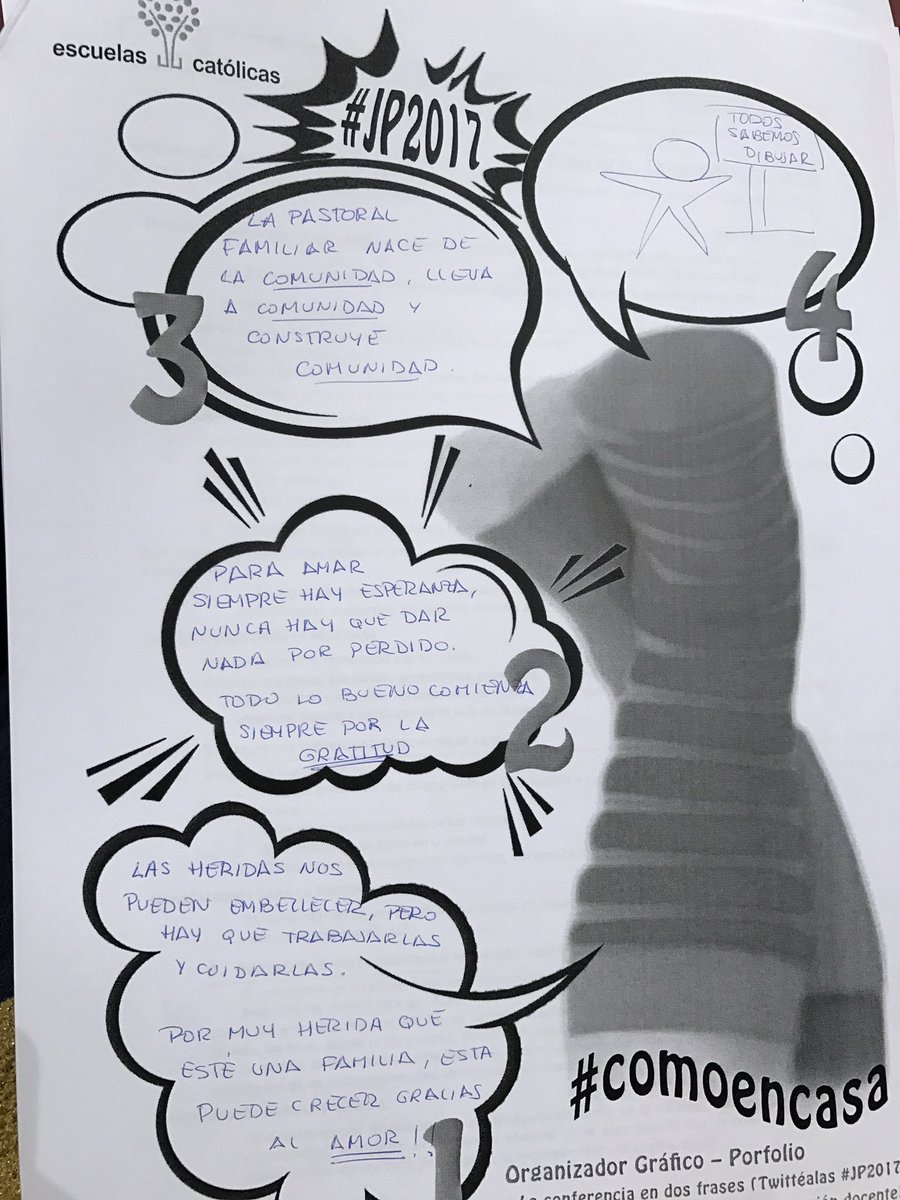 escuelas católicas
#JP2017
TODOS
SABEMOS
DIBUJAR
4
LA PASTORAL
FAMILIAR NACE DE
LA COMUNIDAD, LLEVA
A COMUNIDAD Y
CONSTRUYE
COMUNIDAD.
3
PARA AMAR
SIEMPRE HAY ESPERANZA,
NUNCA HAY QUE DAR
NADA POR PERDIDO.
TODO LO BUENO COMIENZA
SIEMPRE POR LA
GRATITUD
2
LAS HERIDAS NOS
PUEDEN EMBELLECER, PERO
HAY QUE TRABAJARLAS
Y CUIDARLAS.
POR MUY HERIDA QUE
ESTÉ UNA FAMILIA, ESTA
PUEDE CRECER GRACIAS
AL AMOR!!
1
#comoencasa
Organizador Gráfico – Porfolio
conferencia en dos frases (Twittéalas #JP2017
docente